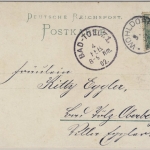 DEUTSCHE REICHSPOST.
POSTKARTE
WOHLDORF
BAD-TÖLZ
92
Fräulein
Kitty Eggler,
Bad Tölz Oberb.
Villa Eggler